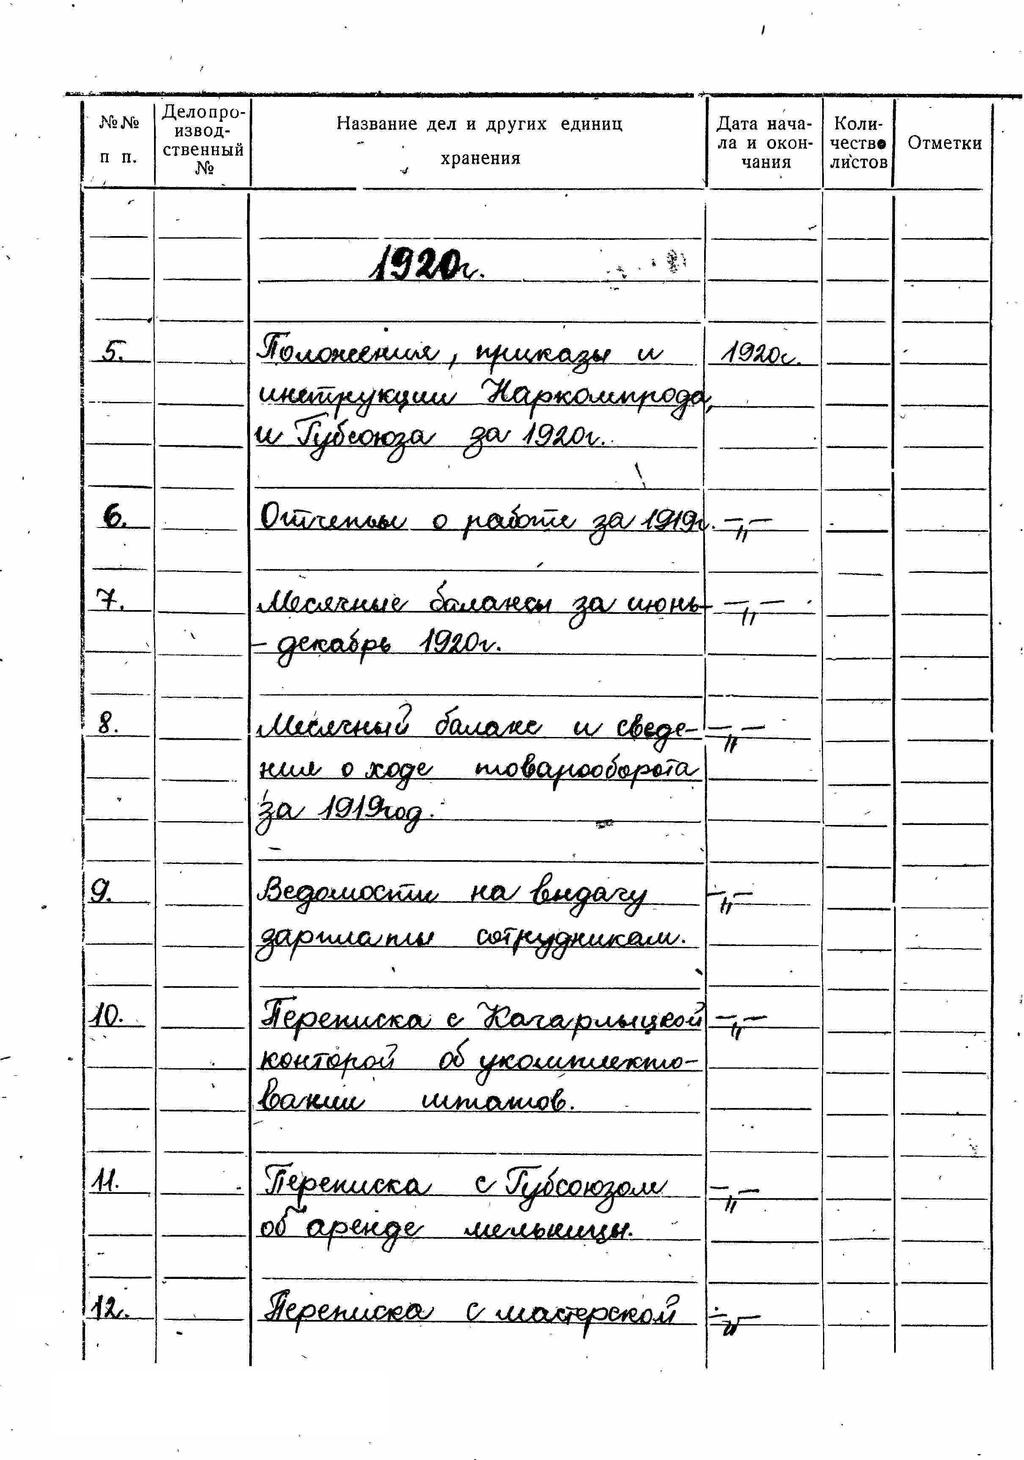 №№ п п.
Делопро-
извод-
ственный
№
Название дел и других единиц
хранения
Дата нача-
ла и окон-
чания
Коли-
чество
листов
Отметки
1920г.
5. Положения, приказы и 1920г.
инструкции Наркомпрода,
и Губсоюза за 1920г.
6. Отчеты о работе за 1919г. —"—
7. Месячные балансы за июнь- —"—
- декабрь 1920г.
8. Месячный баланс и сведе- —"—
ния о ходе товарооборота
за 1919год.
9. Ведомости на выдачу —"—
зарплаты сотрудникам.
10. Переписка с Качарлыцкой —"—
конторой об укомплекто-
вании штатов.
11. Переписка с Губсоюзом —"—
об аренде мельницы.
12. Переписка с мастерской —"—